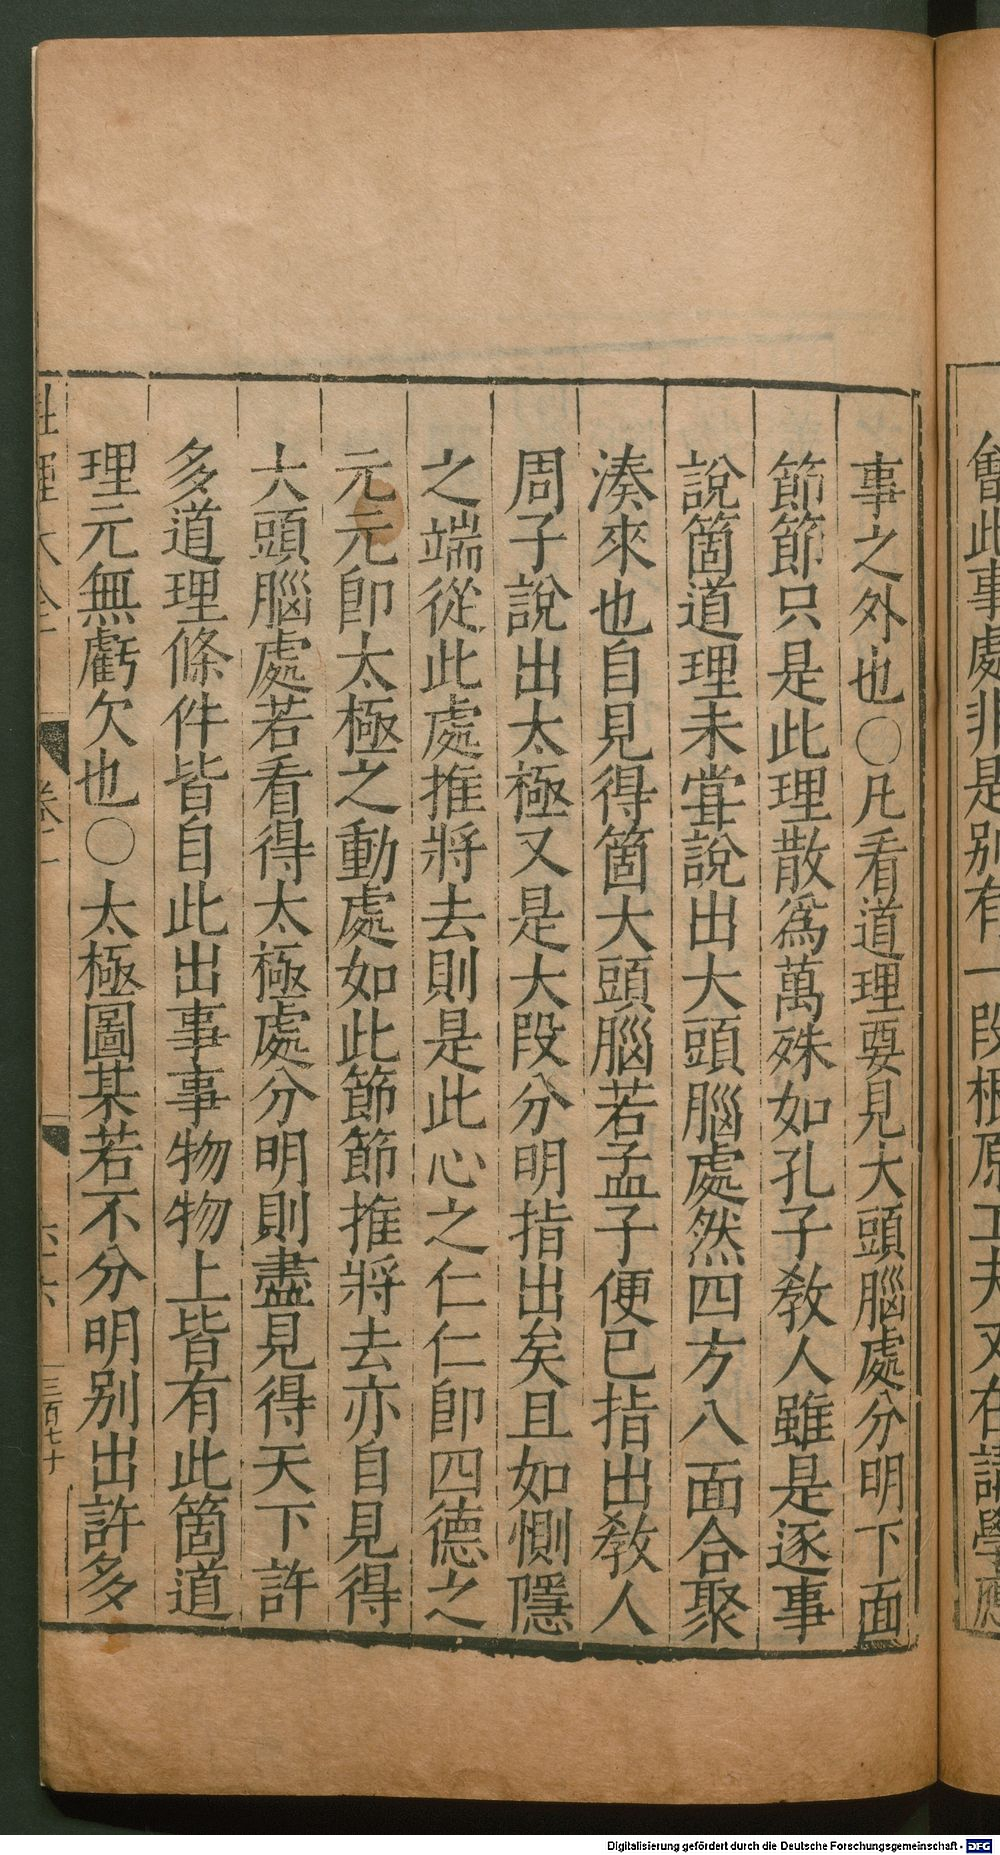 會此事處非是别有一段根原工夫又在講學應
事之外也○凡看道理要見大頭腦處分明下面
節節只是此理散爲萬殊如孔子教人雖是逐事
說箇道理未甞說出大頭腦處然四方八面合聚
湊來也自見得箇大頭腦若孟子便已指出教人
周子說出太極又是大段分明指出矣且如惻隱
之端從此處推將去則是此心之仁仁卽四德之
元元卽太極之動處如此節節推將去亦自見得
大頭腦處若看得太極處分明則盡見得天下許
多道理條件皆自此出事事物物上皆有此箇道
理元無虧欠也○太極圖某若不分明别出許多
性理大全
卷一
三百七十
Digitalisierung gefördert durch die Deutsche Forschungsgemeinschaft - DFG